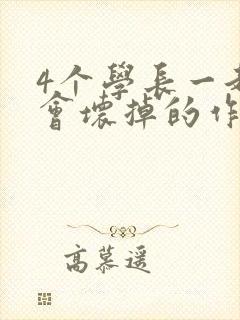 4个學長一
會壞掉的作
高慕遥